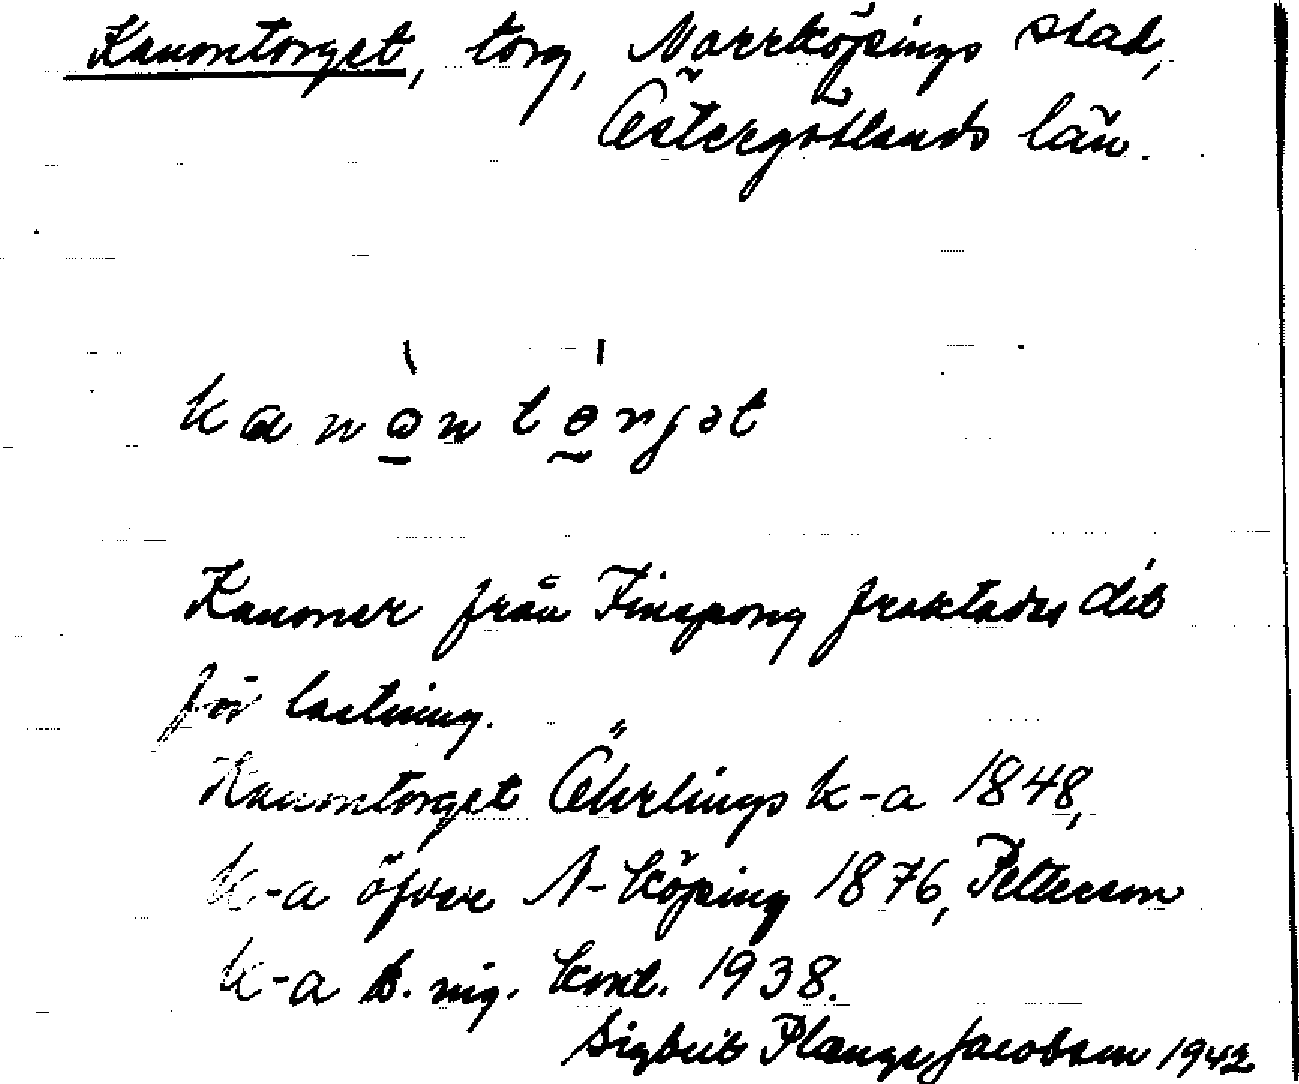 Kanontorget, torg, Norrköpings stad,
Östergötlands län.
kanòntórjət
Kanoner från Finspong fraktades dit
för lastning.
Kanontorget Öhrlings k-a 1848,
k-a öfver N-köping 1876, Petterson
k-a B. ing. kont. 1938.
Sigbrit Plænge Jacobson 1942